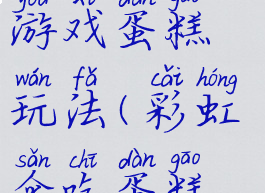 yóu xì dàn gāo
游戏蛋糕
wán fǎ cǎi hóng
玩法(彩虹
sǎn chī dàn gāo
吃蛋糕